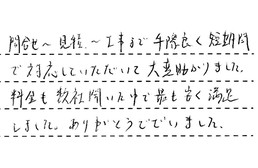 問合せ～見積～工事まで手際良く短期間
で対応していただいて大変助かりました。
料金も数社聞いた中で最も安く満足
しました。ありがとうございました。